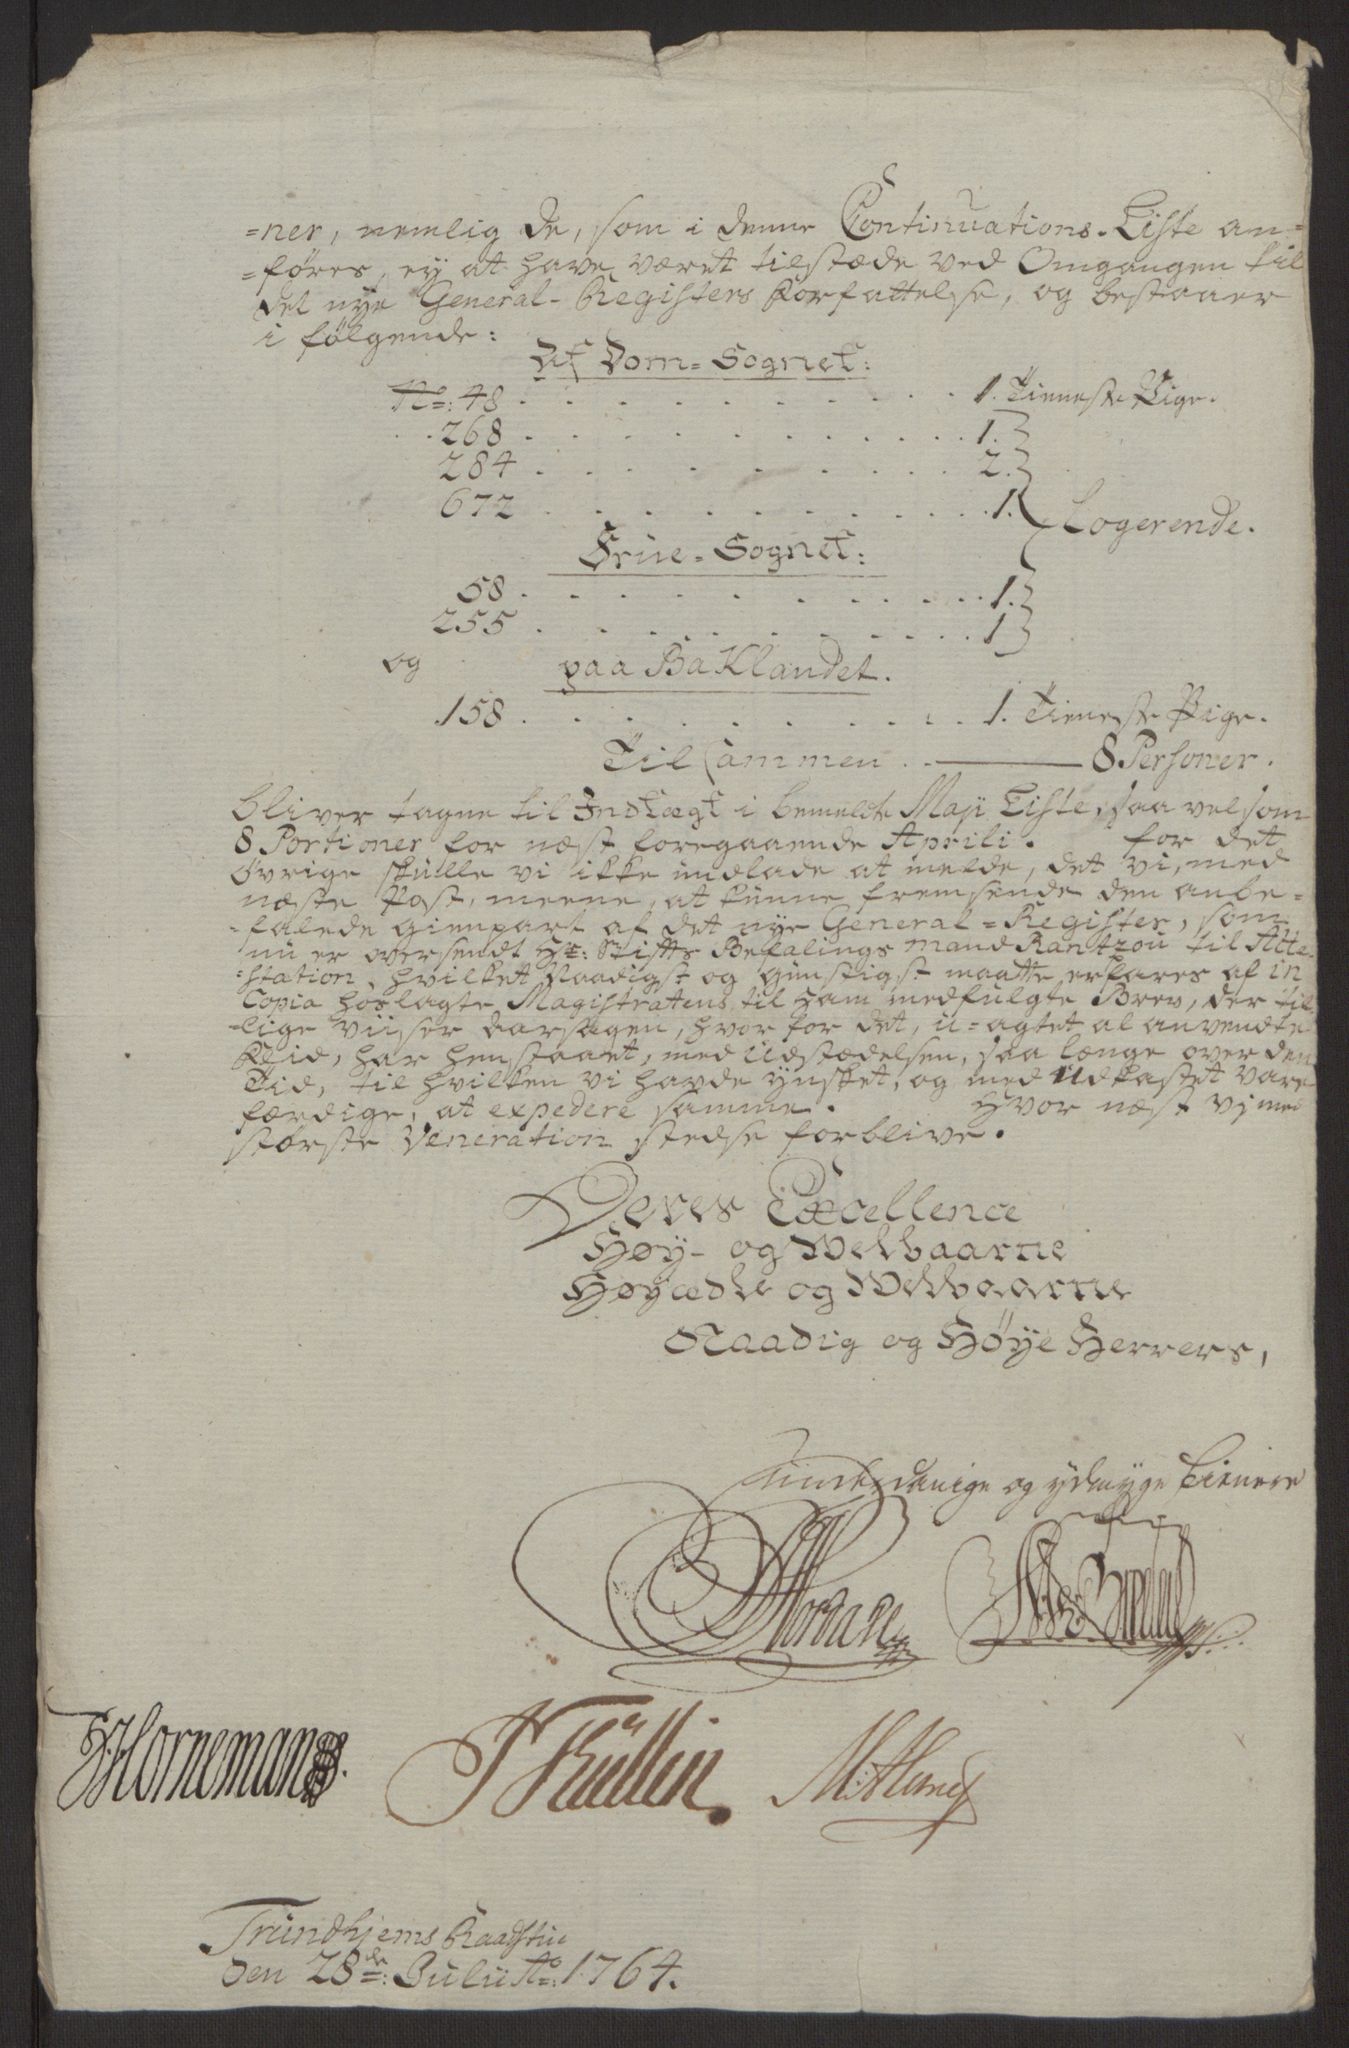 =ner, nemlig de, som i denne Continuations-Liste an=
=føres, ey at have været tilstæde ved Omgangen til
det nye General-Registers Forfattelse, og bestaaer
i følgende:
Af Dom=Sognet:
No: 48 . . . . . . . . . . 1. Tieneste Pige.
268 . . . . . . . . . . 1.
284 . . . . . . . . . . 2.
672 . . . . . . . . . . 1. Logerende.
Frue=Sognet:
58 . . . . . . . . . . 1.
255 . . . . . . . . . . 1
og paa Baklandet.
158 . . . . . . . . . . 1. Tieneste Pige.
Tilsammen . — 8 Personer.
bliver tagne til Indtægt i bemeldte Maji Liste, saavelsom
8 Portioner for næst foregaaende Aprili. for det
øvrige skulle vi ikke undlade at melde, det vi, med
næste Post, meene, at kunne fremsende den anbe=
=falede gienpart af det nye General=Register, som
nu er oversendt Hr: Stifts Befalings mand Rantzou til Atte=
=station, hvilket Naadigst og gunstigst maatte erfares af in
Copia hoslagte Magistratens til ham medfulgte Brev, der til=
=lige viiser Aarsagen, hvorfor det, u=agtet al anvendte
Fliid, har henstaaet, med Udstædelsen, saa længe over den
Tid, til hvilken vi havde ynsket, og med Udkastet vare
færdige, at expedere samme. Hvor næst vi med
største Veneration stedse forblive.
Deres Excellence
Høy- og Velbaarne
Høyædle og Velbaarne
Naadig og Høye Herrers,
underdanige og ydmyge Tienere
Hornemann.
M: A Hund
Trundhjems Raadstue
den 28de: Julii Ao: 1764.